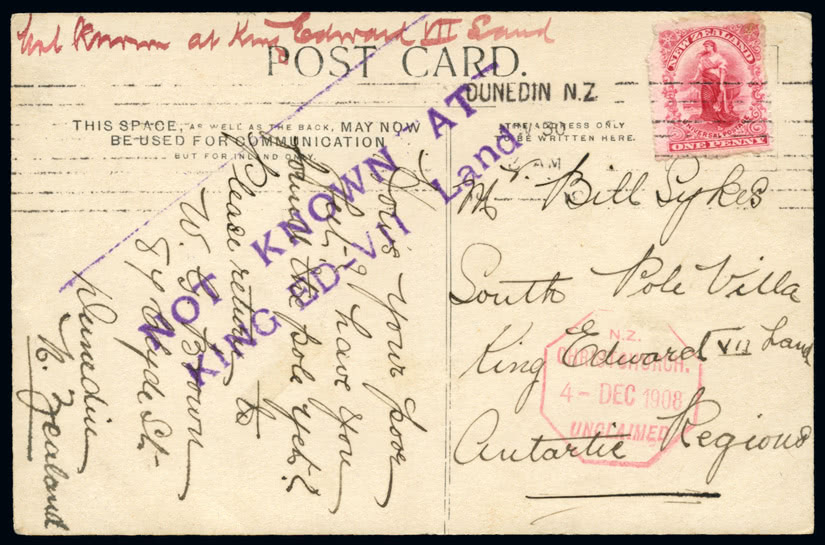 Not Known at King Edward VII Land
POST CARD.
DUNEDIN N.Z
THIS SPACE, AS WELL AS THE BACK, MAY NOW
BE USED FOR COMMUNICATION
BUT FOR INLAND ONLY.
THE ADDRESS ONLY
TO BE WRITTEN HERE.
30
AM
NEW ZEALAND
ONE PENNY
NOT KNOWN AT
KING ED-VII Land
How's your poor
feet, have you
found the pole yet?
Please return to
Brown
Clyde St.
Dunedin
N. Zealand
Mr. Bill Sykes
South Pole Villa
King Edward VII Land
Antartic Regions
N.Z.
CHRISTCHURCH.
4 - DEC 1908
UNCLAIMED